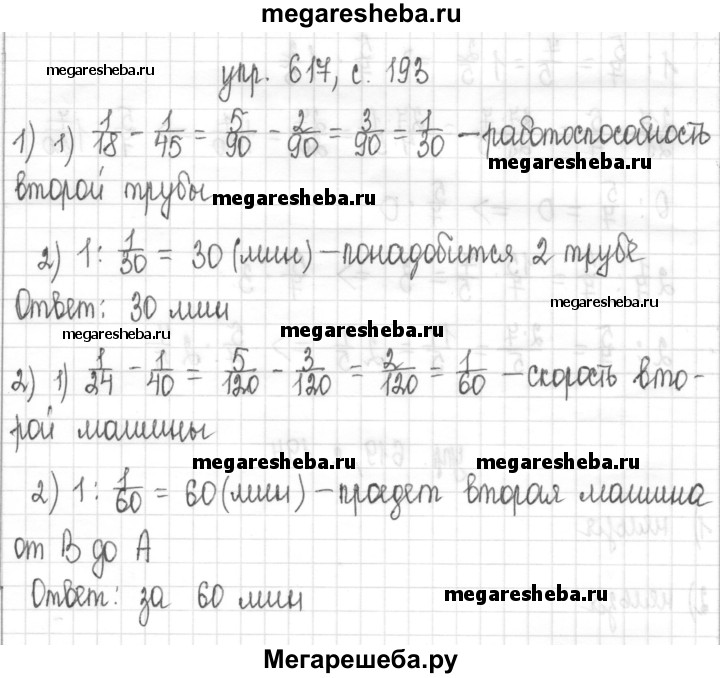 megaresheba.ru
megaresheba.ru упр. 617, с. 193
1) 1) 1/18 - 1/45 = 5/90 - 2/90 = 3/90 = 1/30 – работоспособность
megaresheba.ru
второй трубы megaresheba.ru
2) 1 : 1/30 = 30 (мин) – понадобится 2 трубе
Ответ: 30 мин megaresheba.ru
megaresheba.ru megaresheba.ru
2) 1) 1/24 - 1/40 = 5/120 - 3/120 = 2/120 = 1/60 – скорость вто-
рой машины
megaresheba.ru megaresheba.ru
2) 1 : 1/60 = 60 (мин) – проедет вторая машина
от В до А
Ответ: за 60 мин megaresheba.ru
Мегарешеба.ру